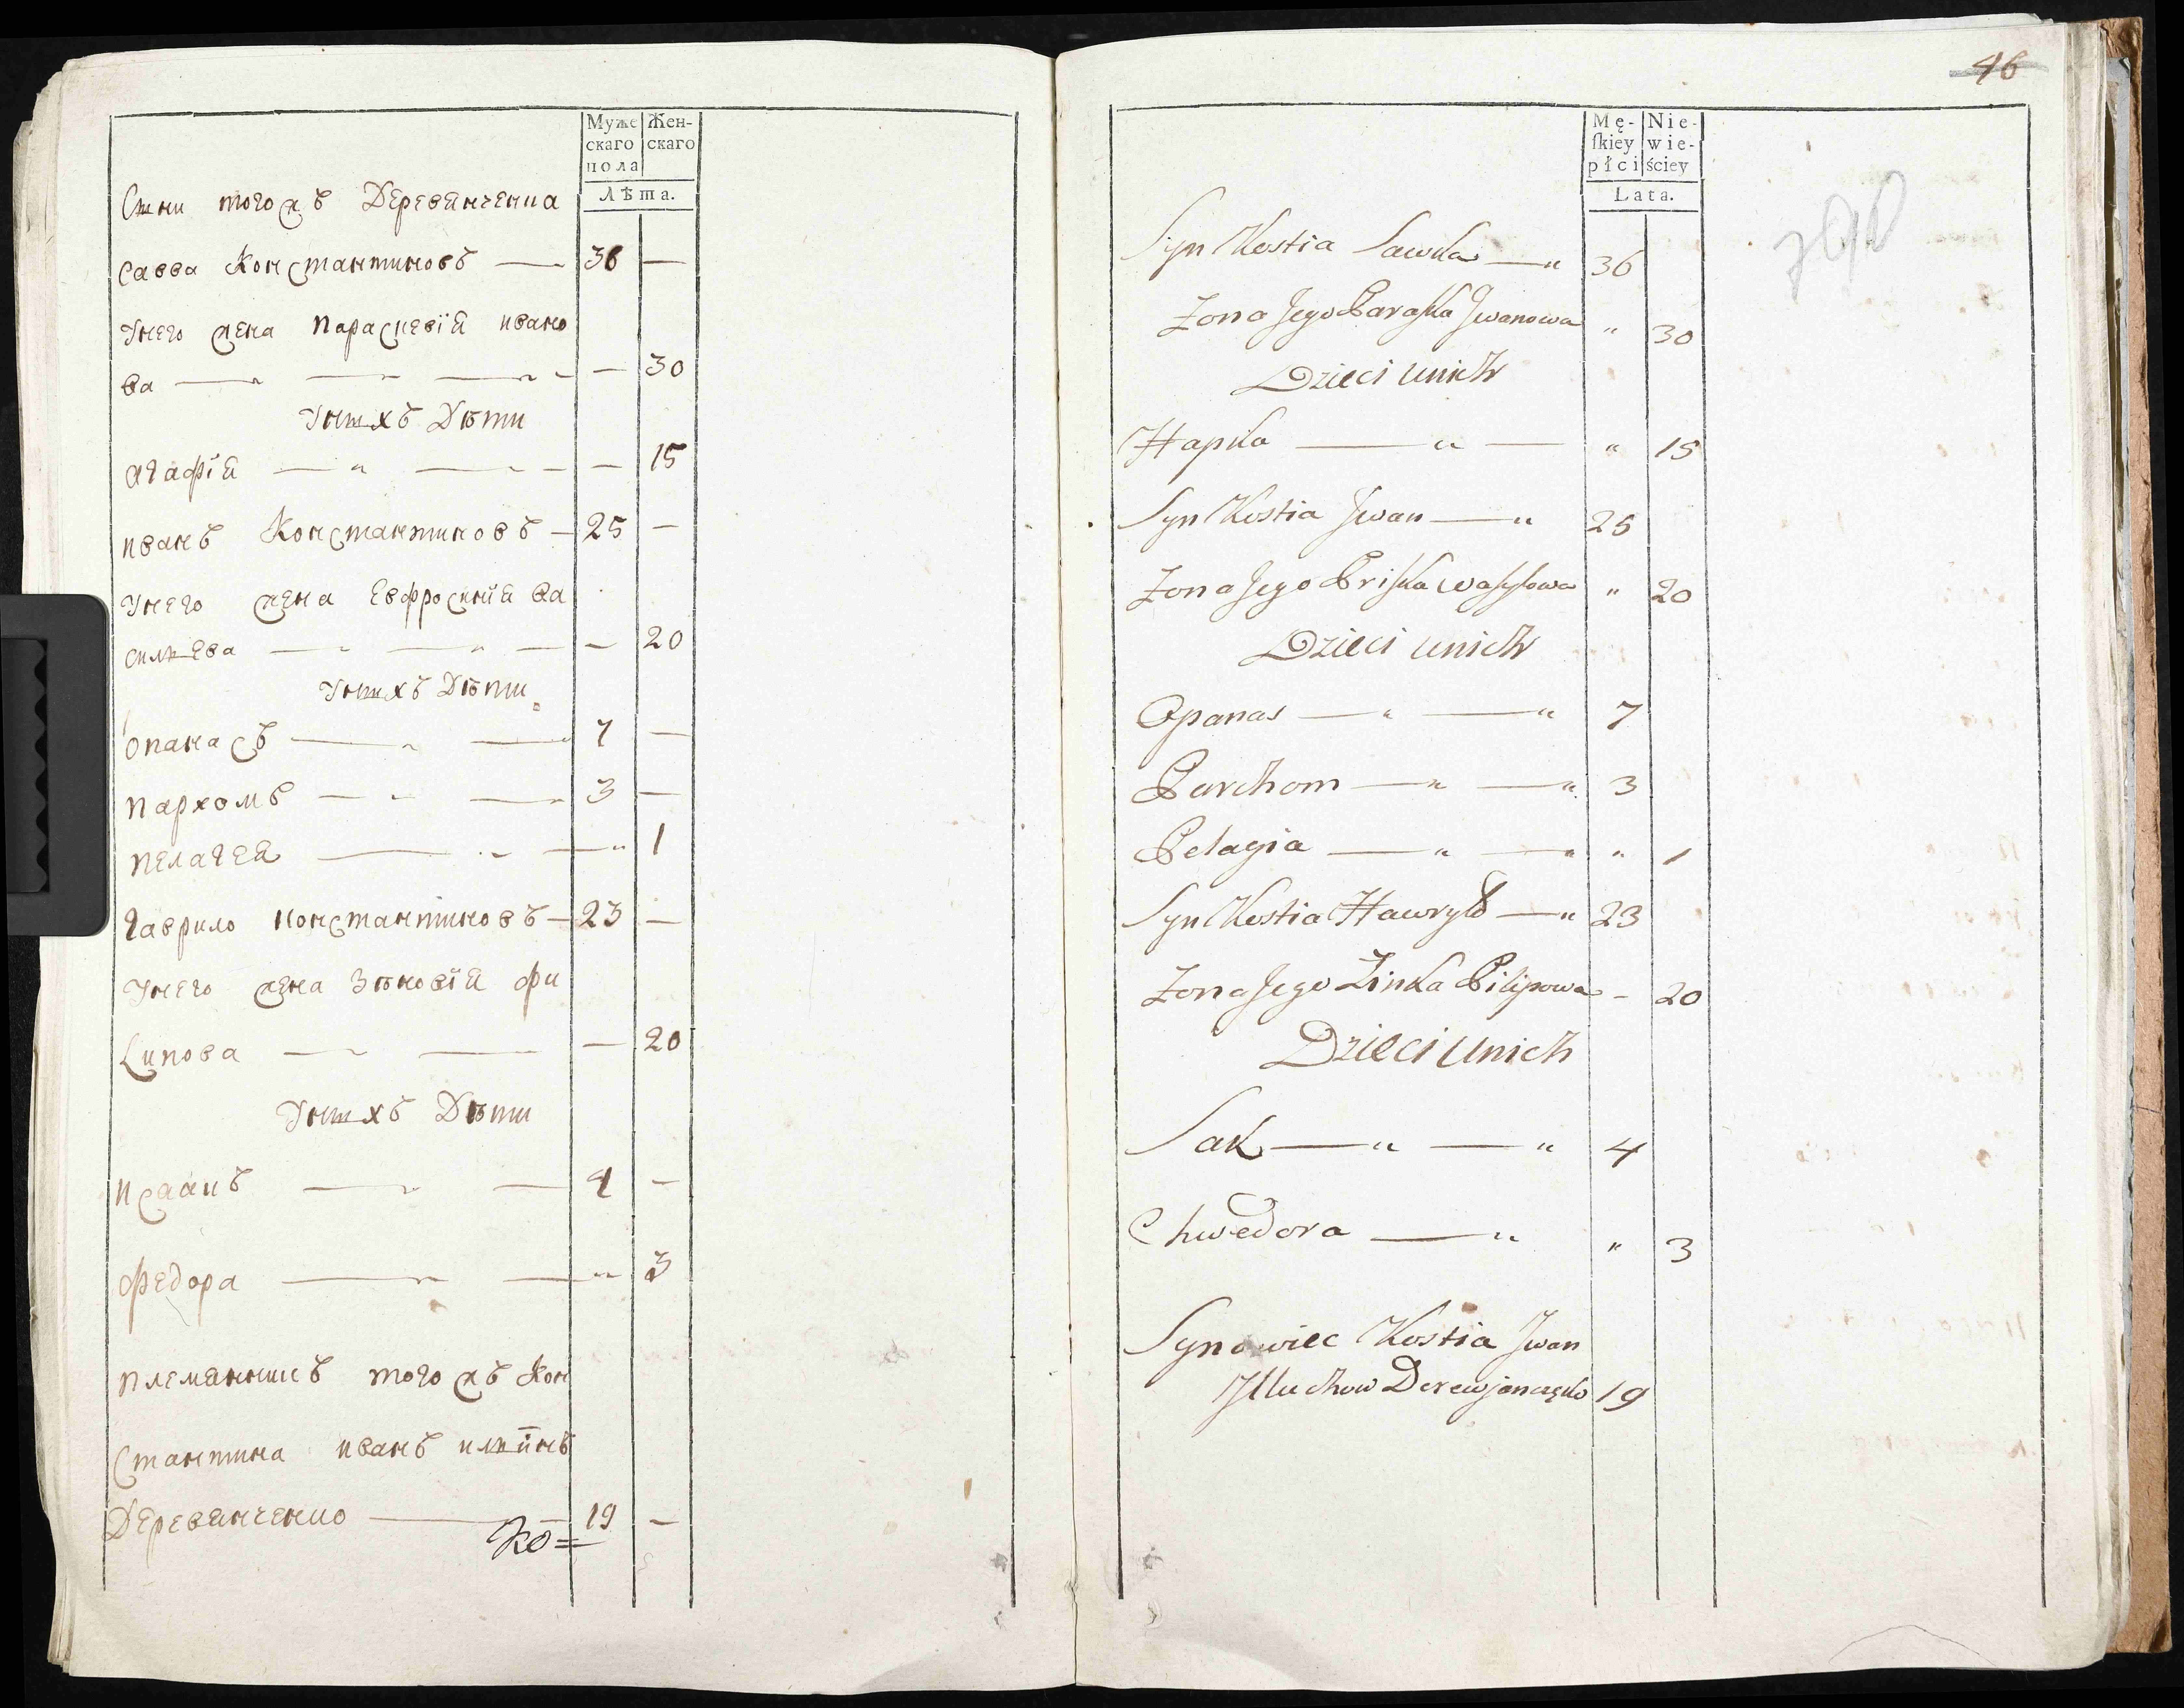 Муже
скаго
пола
Жен-
скаго
Лѣта.
Сыни тогожъ Деревянченка
Савва Константиновъ — 36 —
Унего жена Параскевїя ивано
ва — — — — 30
Унихъ Дѣти
Агафїя — " — — — 15
иванъ Константиновъ — 25 —
Унего жена Евфросинїя Ва
силиева — — — — 20
Унихъ Дѣти
Опанасъ — — 7 —
Пархомъ — — 3 —
Пелагея — — " 1
Гаврило Константиновъ — 23 —
Унего жена Зѣновїя фи
Липова — — — 20
Унихъ Дѣти
Исаакъ — — 4 —
Федора — — " 3
Племянникъ тогожъ Кон
Стантина иванъ илиинъ
Деревянченко — 19 —
Ко=
46
Mę-
ſkiey
płci
Nie-
wie-
ściey
Lata.
Syn Kostia Sawka — " 36
Żona Jego Paraſka Jwanowa " 30
Dzieci unich
Hapka — " — " 15
Syn Kostia Jwan — " 25
Żona Jego Priſka Waſylowa " 20
Dzieci unich
Opanas — " — " 7
Parchom — " — " 3
Pelagia — " — " " 1
Syn Kostia Hawryło — " 23
Żona Jego Zinka Pilipowa - 20
Dzieci Unich
Sak — " — " 4
Chwedora — " " 3
Synowiec Kostia Jwan
Jlluchow Derewjanczęko 19